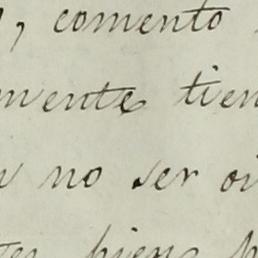 , comento
mente tien
no ser oi
bien